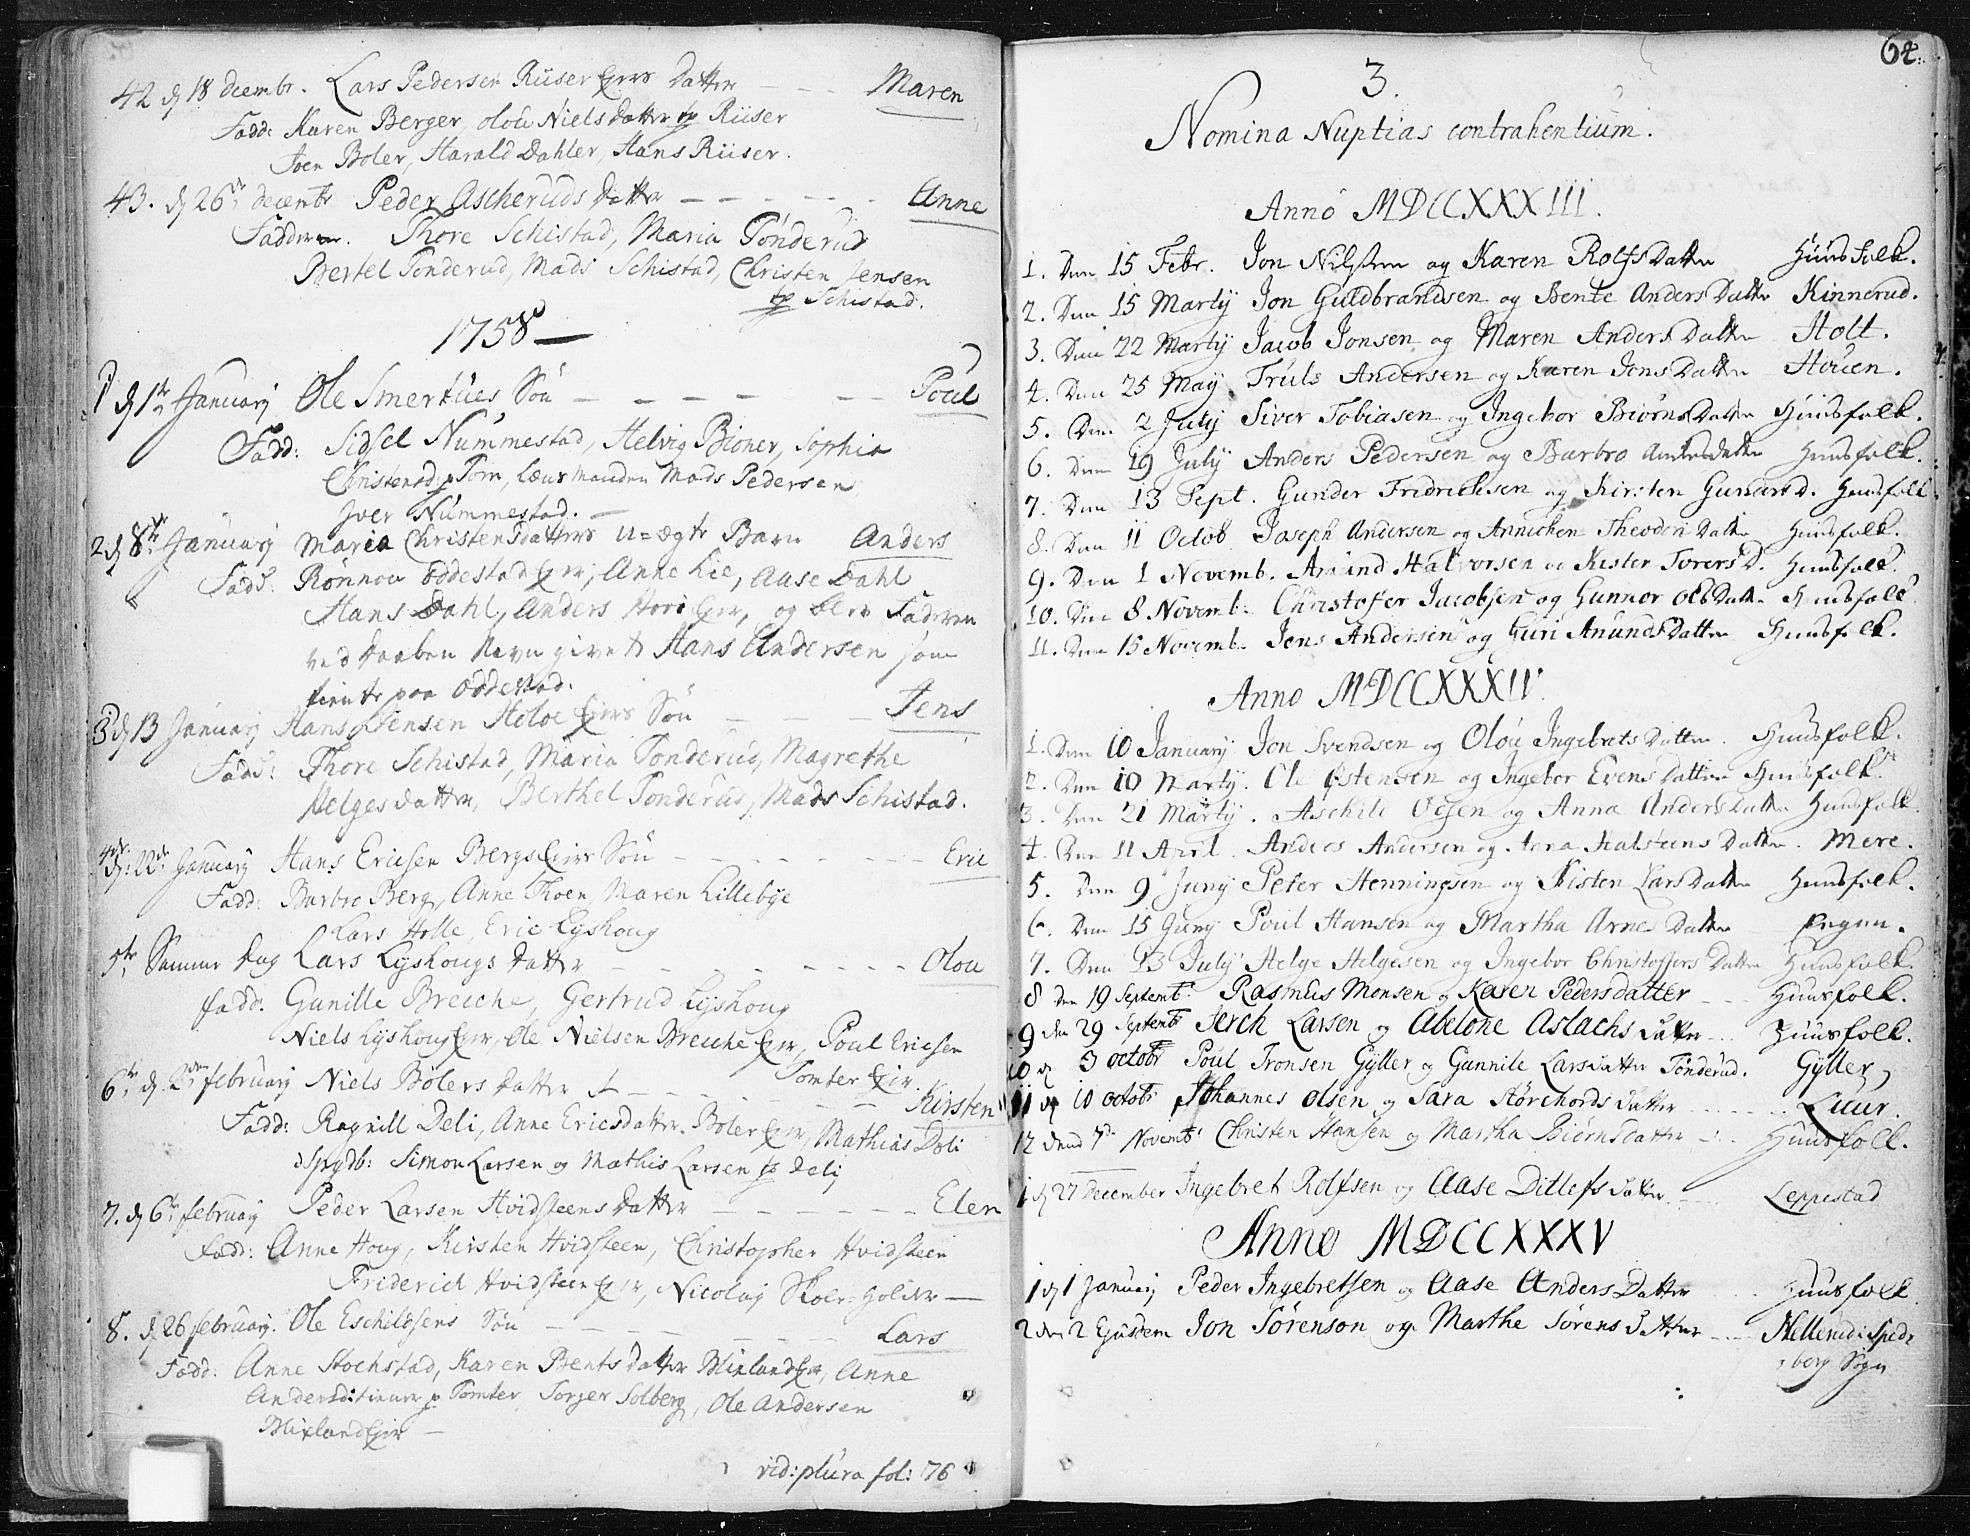 42 d 18 decembr. Lars Pedersen Riiser Eier Datter — — Maren
Fadd: Karen Berger, Olou Niels datter Riiser
Iver Boler, Harald Dahler, Hans Riiser.
43. d 26 decembr Peder Ascheruds datter — — — — — Anne
Faddere. Thore Schistad, Maria Tonderud
Bertel Tonderud, Mads Schistad, Christen Jensen
Schistad.
1758
1 d 1 January Ole Smertues Søn — — — — — Poul
Fadd: Sidsel Nummestad, Helvig Bioner, Sophia
Christensd Tom, Mads Pedersen
Iver Nummestad.
2 d 8 January Maria Christensdatters u=ægte Barn Anders
Fadd: Rønnou Oddestad Eier, Anne Lie, Aase Dahl
Hans Dahl, Anders Eier, og blev Faderen
ved Daaben Navn givet Hans Andersen som
tiente paa Oddestad.
3 d 13 January Hans Jensen Eiers Søn — — — Jens
Fadd: Thore Schistad, Maria Tonderud, Magrethe
Helgesdatter, Berthel Tonderud, Mads Schistad.
4 d: 22 January Hans Ericsen Bergs Eier Søn — — — — — Eric
Fadd: Barbro Berg, Anne Thoen, Maren Lillebye
Lars Holle, Eric Lyshoug
5 Samme Dag Lars Lyshougs datter — — — — — Olou
fadd: Gunille Breche, Gertrud Lyshoug
Niels Lyshoug Eier, Ole Nielsen Breche Eier, Poul Ericsen
Tomter Eier.
6 d. 2 february Niels Bølers datter — — — — — Kirsten
Fadd: Ragnill Deli, Anne Ericsdatter Boler Eier, Mathias Deli
Simon Larsen og Mathis Larsen Deli
7. d 6 february Peder Larsen Hvidsteens datter — — — — — Elen
Fadd: Anne Houg, Kirsten Hvidsteen, Christopher Hvidsteen
Friderich Hvidsteen Eier, Nicolay Skoe=holder —
8. d 26 february. Ole Eschildsens Søn — — — — — Lars
Fadd: Anne Stochstad, Karen Bentsdatter Mixland Eier, Anne
Tomter, Torger Solberg, Ole Andersen
Mixland Eier —
vid: plura fol: 76
64.
3.
Nomina Nuptias contrahentium.
Anno MDCCXXXIII.
1. Den 15 Febr. Jon Nilsen og Karen RolfsDatter Huusfolk.
2. Den 15 Martij Jon Guldbrandsen og Bente AndersDatter Kinnerud.
3. Den 22 Martij Jacob Jonsen og Maren AndersDatter Holt.
4. Den 25 May Truls Andersen og Karen JonsDatter Houen.
5. Den 2 July Siver Tobiasen og Ingebor BiørnsDatter Huusfolk.
6. Den 19 July Anders Pedersen og Barbro Andersdatter Huusfolk.
7. Den 13 Sept. Gunder Fridrichsen og Kirsten GunarsD. Huusfolk
8. Den 11 Octob Joseph Andersen og Annichen TheodoriDatter Huusfolk.
9. Den 1 Novemb. Amund Halvorsen og Kister TorersD. Huusfolk.
10. Den 8 Novemb. Christofer Jacobsen og Gunnor OlsDatter Huusfolk
11. Den 15 Novemb. Jens Andersen og Guri AnundsDatter Huusfolk.
Anno MDCCXXXIV.
1. Den 10 January Jon Svendsen og Olou IngebretsDatter. Huusfolk.
2. Den 10 Martij. Ole Østensen og Ingebor EvensDatter Huusfolk.
3. Den 21 Martij. Aschild Olsen og Anna AndersDatter Huusfolk
4. Den 11 April. Anders Andersen og HalsteensDatter. Mere.
5. Den 9 Juny Peter Henningsen og Kisten LarsDatter Huusfolk.
6. Den 15 Juny Poul Hansen og Martha ArnesDatter Engen.
7. Den 13 July Helge Helgesen og Ingebor ChristoffersDatter Huusfolk.
8 den 19 Septemb: Rasmus Monsen og Karen Pedersdatter — Huusfolk.
9 den 29 Septemb Jerch Larsen og Abelone Aslachsdatter — Huusfolk.
10 d 3 octobr Poul Tronsen Gyller og Gunnile Larsdatter Tonderud. Gyller
11 d 10 octobr Johannes Olsen og Sara datter — Luur.
12 dend 7 Novemb: Christen Hansen og Martha Biørnsdatter — Huusfolk.
1 d 27 december Ingebret Rolfsen og Aase Ditlefsdatter — Leppestad
Anno MDCCXXXV
1 d 1 January Peder Ingebretsen og Aase AndersDatter Huusfolk
2 den 2 Ejusdem Jon Sørenson og Marthe Sørensdatter — Hellerud: Sped=
berg Sogn